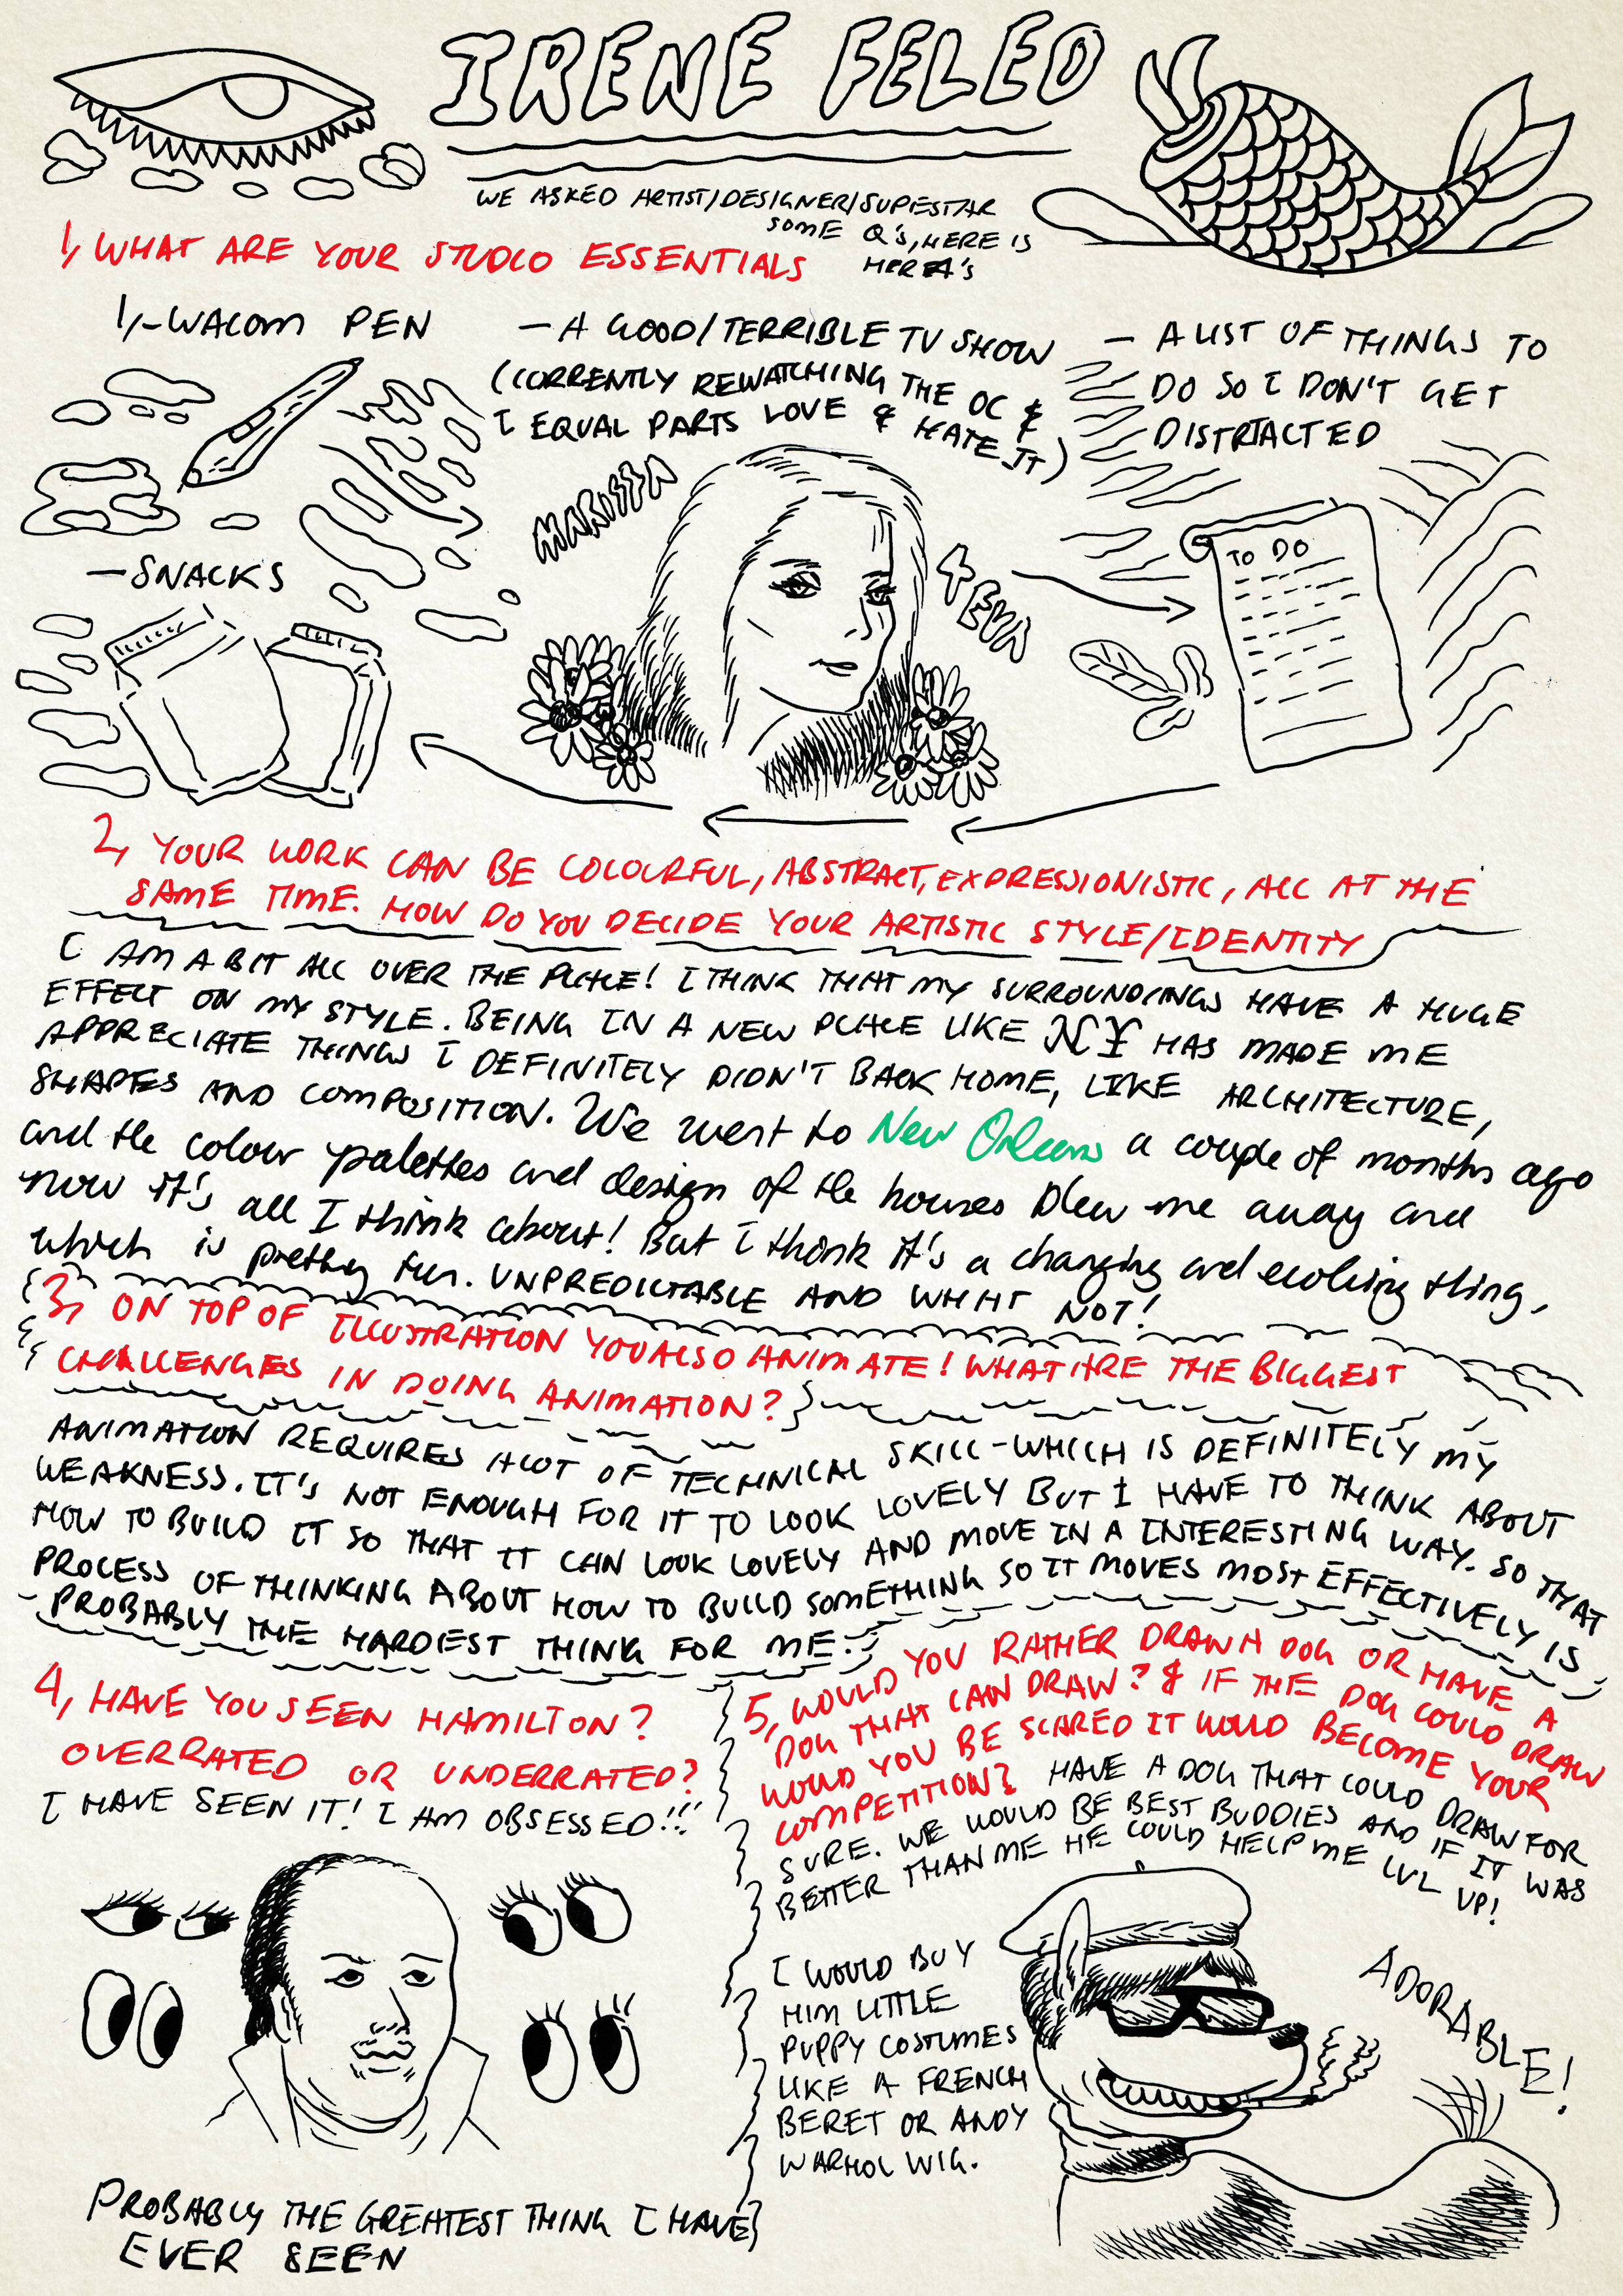 IRENE FELEO
WE ASKED ARTIST/DESIGNER/SUPESTAR
SOME Q'S, HERE IS
HER A'S
1, WHAT ARE YOUR STUDIO ESSENTIALS
1,-WACOM PEN
- A GOOD/TERRIBLE TV SHOW
(CORRENTLY REWATCHING THE OC &
I EQUAL PARTS LOVE & HATE IT)
- A LIST OF THINGS TO
DO SO I DON'T GET
DISTRACTED
MARISSA
4 EVA
TO DO
-SNACKS
2, YOUR WORK CAN BE COLOURFUL, ABSTRACT, EXPRESSIONISTIC, ALL AT THE
SAME TIME. HOW DO YOU DECIDE YOUR ARTISTIC STYLE/IDENTITY
I AM A BIT ALL OVER THE PLACE! I THINK THAT MY SURROUNDINGS HAVE A HUGE
EFFECT ON MY STYLE. BEING IN A NEW PLACE LIKE NY HAS MADE ME
APPRECIATE THINGS I DEFINITELY DIDN'T BACK HOME, LIKE ARCHITECTURE,
SHAPES AND COMPOSITION. We went to New Orleans a couple of months ago
and the colour palettes and design of the houses blew me away and
now it's all I think about! But I think it's a changing and evolving thing,
which is pretty fun. UNPREDICTABLE AND WHAT NOT!
3, ON TOP OF ILLUSTRATION YOU ALSO ANIMATE! WHAT ARE THE BIGGEST
CHALLENGES IN DOING ANIMATION?
ANIMATION REQUIRES A LOT OF TECHNICAL SKILL-WHICH IS DEFINITELY MY
WEAKNESS. IT'S NOT ENOUGH FOR IT TO LOOK LOVELY BUT I HAVE TO THINK ABOUT
HOW TO BUILD IT SO THAT IT CAN LOOK LOVELY AND MOVE IN A INTERESTING WAY. SO THAT
PROCESS OF THINKING ABOUT HOW TO BUILD SOMETHING SO IT MOVES MOST EFFECTIVELY IS
- PROBABLY THE HARDEST THING FOR ME.
4, HAVE YOU SEEN HAMILTON?
OVERRATED OR UNDERRATED?
I HAVE SEEN IT! I AM OBSESSED!!!
PROBABLY THE GREATEST THING I HAVE
EVER SEEN
5, WOULD YOU RATHER DRAW A DOG OR HAVE A
DOG THAT CAN DRAW? & IF THE DOG COULD DRAW
WOULD YOU BE SCARED IT WOULD BECOME YOUR
COMPETITION? HAVE A DOG THAT COULD DRAW FOR
SURE. WE WOULD BE BEST BUDDIES AND IF IT WAS
BETTER THAN ME HE COULD HELP ME LVL UP!
I WOULD BUY
HIM LITTLE
PUPPY COSTUMES
LIKE A FRENCH
BERET OR ANDY
WARHOL WIG.
ADORABLE!